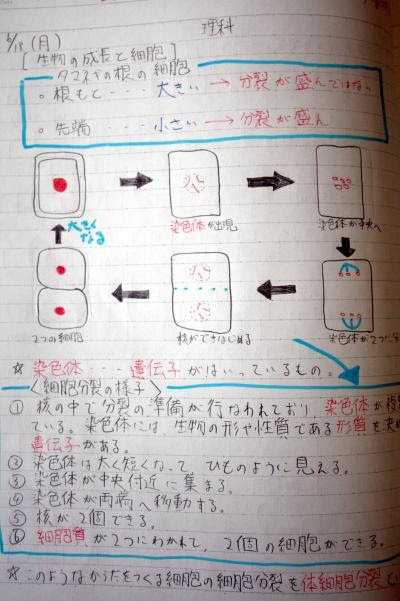 理科
6/18 (月)
[生物の成長と細胞]
タマネギの根の細胞
○根もと・・・大きい → 分裂が盛んではない
○先端・・・小さい → 分裂が盛ん
染色体が出現
染色体が中央へ
大きくなる
2つの細胞
核ができはじめる
染色体が2つに
☆染色体・・・遺伝子がはいっているもの。
〈細胞分裂の様子〉
① 核の中で分裂の準備が行なわれており、染色体が複
ている。染色体には生物の形や性質である形質を決め
遺伝子がある。
② 染色体は太く短くなって、ひものように見える。
③ 染色体が中央付近に集まる。
④ 染色体が両端へ移動する。
⑤ 核が2個できる。
⑥ 細胞質が2つにわかれて、2個の細胞ができる。
☆このようなからだをつくる細胞の細胞分裂を体細胞分裂とい